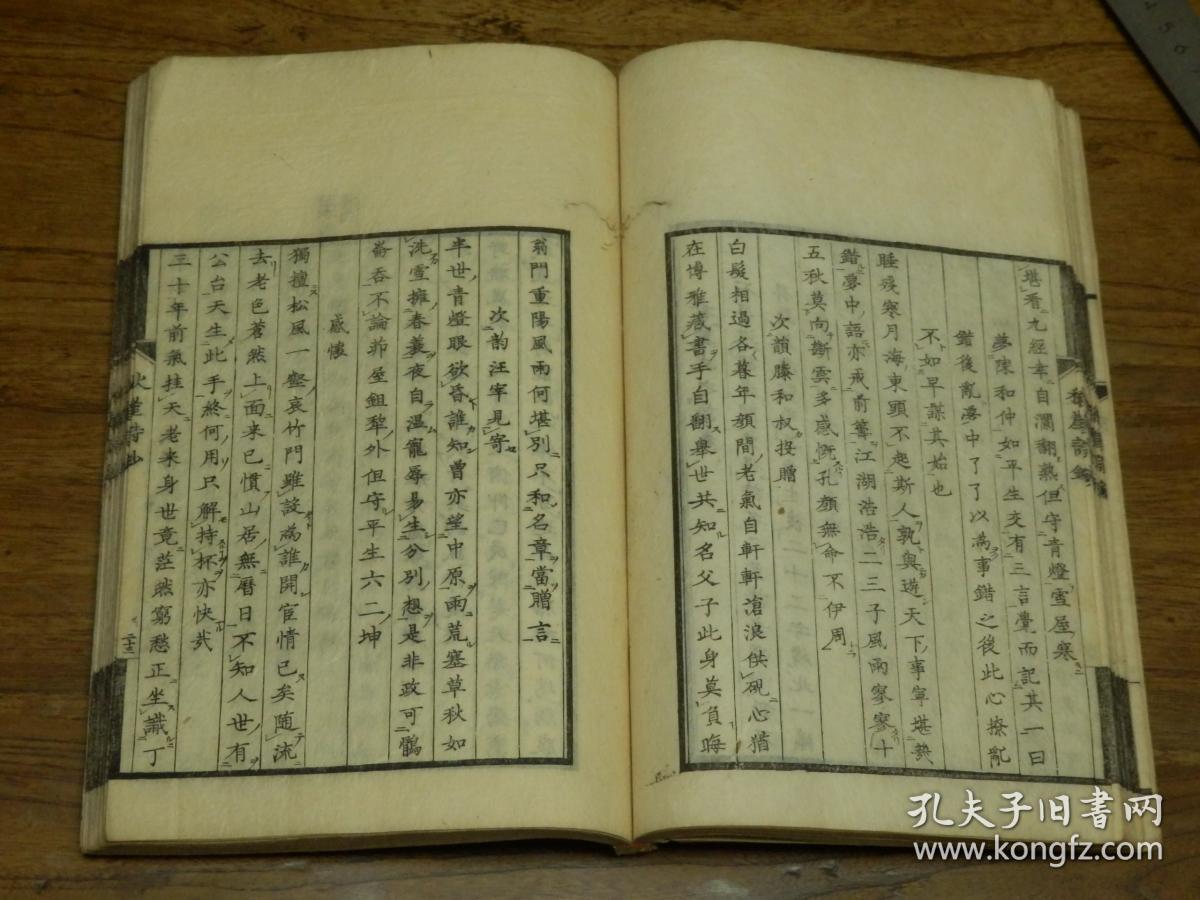 堪看九經幸自瀾翻熟但守青燈雪屋寒
夢陳和仲如平生交有三言覺而記其一曰
錯後亂夢中了了以為事錯之後此心撩亂
不如早謀其始也
睡殘寒月海東頭不起斯人孰與遊天下事寧堪幾
錯夢中語亦戒前籌江湖浩浩二三子風雨寥寥十
五秋莫向斷雲多感慨孔顏無命不伊周
次韻滕和叔投贈
白髮相過各暮年顏間老氣自軒軒滄浪供硯心猶
在博雅藏書手自翻舉世共知名父子此身莫負晦
翁門重陽風雨何堪別尺和名章當贈言
次韵汪宰見寄
半世青燈眼欲昏誰知曹亦望中原雨荒塞草秋如
洗雪擁春羹夜自温寵辱易生分別想是非政可鶻
崙吞不論茆屋鉏犂外但守平生六二坤
感懷
獨擅松風一壑哀竹門雖設為誰開宦情已矣隨流
去老色蒼然上面来已慣山居無曆日不知人世有
公台天生此手終何用只解持杯亦快哉
三十年前氣拄天老来身世竟茫然窮愁正坐識丁
秋崖詩鈔
二十三
4 5 6
孔夫子旧书网
www.kongfz.com